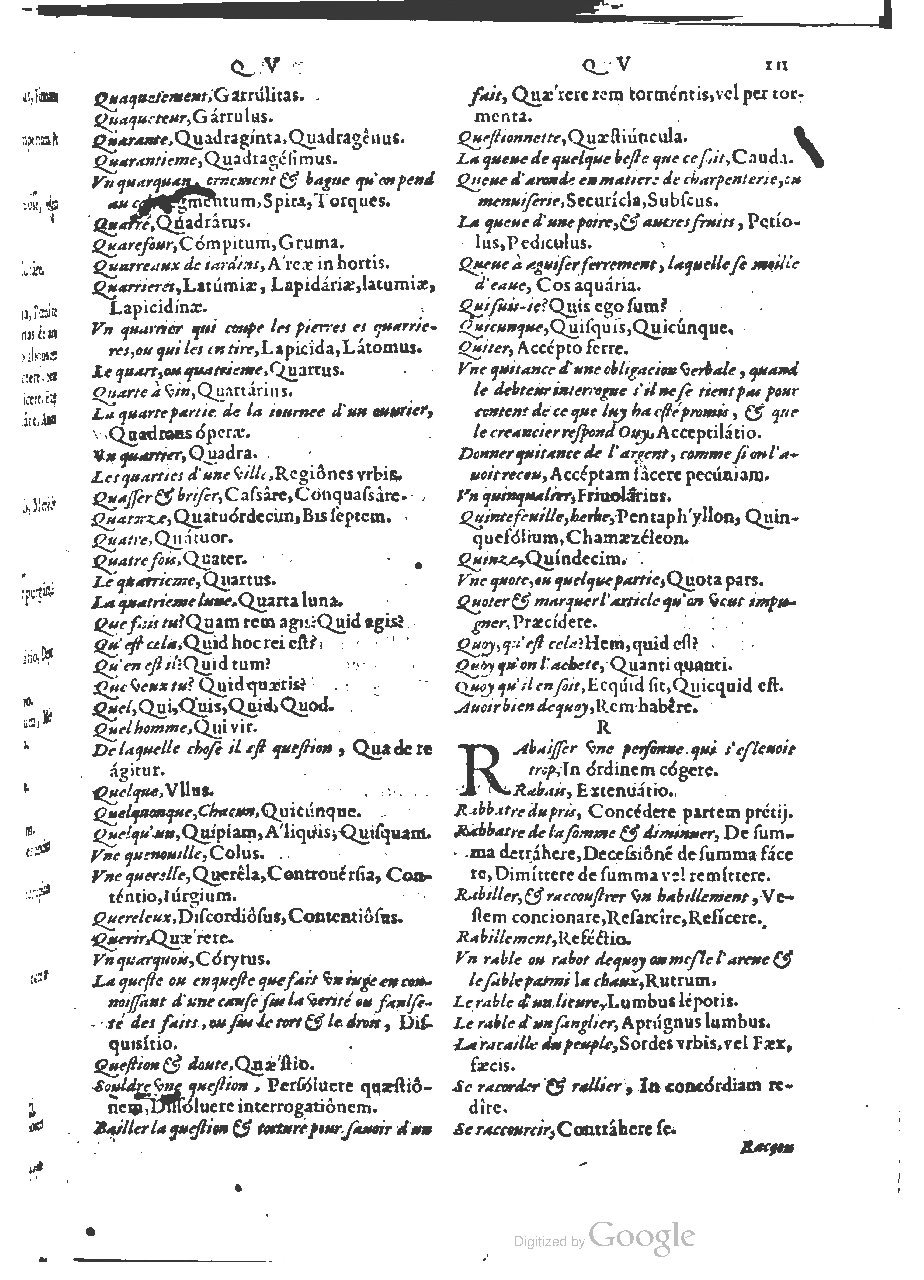 Q V
Quaquetement, Garrúlitas.
Quaqueteur, Gárrulus.
Quarante, Quadragínta, Quadragênus.
Quarantieme, Quadragésimus.
Vn quarquan, ornement & bague qu'on pend
au gmentum, Spira, Torques.
Quarré, Quadrâtus.
Quarefour, Cómpitum, Gruma.
Quarreaux de iardins, A'reæ in hortis.
Quarrieres, Latúmiæ, Lapidáriæ, latumiæ,
Lapicidinæ.
Vn quarrier qui coupe les pierres es quarrie-
res, ou qui les en tire, Lapicida, Látomus.
Le quart, ou quatrieme, Quartus.
Quarte à vin, Quartárius.
La quarte partie de la iournee d'un ouurier,
Quadrans óperæ.
Vn quartier, Quadra.
Les quarties d'une ville, Regiônes vrbis.
Quasser & briser, Cassâre, Conquassâre.
Quatorze, Quatuórdecim, Bis septem.
Quatre, Quátuor.
Quatre fois, Quater.
Le quatrieme, Quartus.
La quatrieme lune, Quarta luna.
Que fais tu? Quam rem agis? Quid agis?
Qu'est cela, Quid hoc rei est?
Qu'en est il? Quid tum?
Que veux tu? Quid quæris?
Quel, Qui, Quis, Quid, Quod.
Quel homme, Qui vir.
De laquelle chose il est question, Qua de re
ágitur.
Quelque, Vllus.
Quelquonque, Chacun, Quicúnque.
Quelqu'un, Quípiam, A'liquis, Quisquam.
Vne quenouille, Colus.
Vne querelle, Querêla, Controuérsia, Con-
téntio, Iúrgium.
Quereleux, Discordiôsus, Contentiôsus.
Querir, Quæ'rere.
Vn quarquois, Córytus.
La queste ou enqueste que fait vn iuge en con-
noissant d'une cause sus la verité ou faulse-
té des faits, ou sus le tort & le droit, Dis-
quisítio.
Question & doute, Quæ'stio.
Souldre vne question, Persóluere quæstiô-
nem, Dissóluere interrogatiônem.
Bailler la question & torture pour sauoir d'un
Q V 111
fait, Quæ'rere rem torméntis, vel per tor-
menta.
Questionnette, Quæstiúncula.
La queue de quelque beste que ce soit, Cauda.
Queue d'aronde en matiere de charpenterie, ou
menuiserie, Securícla, Subscus.
La queue d'une poire, & autres fruits, Petio-
lus, Pediculus.
Queue à aguiser ferrement, laquelle se mouille
d'eaue, Cos aquária.
Qui suis-ie? Quis ego sum?
Quicunque, Quisquis, Quicúnque.
Quiter, Accépto ferre.
Vne quitance d'une obligacion verbale, quand
le debteur interrogue s'il ne se tient pas pour
content de ce que luy ha esté promis, & que
le creancier respond Ouy, Acceptilátio.
Donner quitance de l'argent, comme si on l'a-
uoit receu, Accéptam fácere pecúniam.
Vn quinqualier, Friuolárius.
Quintefeuille, herbe, Pentaph'yllon, Quin-
quefólium, Chamæzéleon.
Quinze, Quíndecim.
Vne quote, ou quelque partie, Quota pars.
Quoter & marquer l'article qu'on veut impu-
gner, Præcídere.
Quoy, qu'est cela? Hem, quid est?
Quoy qu'on l'achete, Quanti quanti.
Quoy qu'il en soit, Ecquíd sit, Quicquid est.
Auoir bien dequoy, Rem habêre.
R
RAbaisser vne personne qui s'esleuoit
trop, In órdinem cógere.
Rabais, Extenuátio.
Rabbatre du pris, Concédere partem prétij.
Rabbatre de la somme & diminuer, De sum-
ma detráhere, Decessiônẽ de summa fáce
re, Dimíttere de summa vel remíttere.
Rabiller, & raccoustrer vn habillement, Ve-
stem concionare, Resarcîre, Refícere.
Rabillement, Reféctio.
Vn rable ou rabot dequoy on mesle l'arene &
le sable parmi la chaux, Rutrum.
Le rable d'un lieure, Lumbus léporis.
Le rable d'un sanglier, Aprúgnus lumbus.
La racaille du peuple, Sordes vrbis, vel Fæx,
fæcis.
Se racorder & rallier, In concórdiam re-
díre.
Se raccourcir, Contráhere se.
Raçon
Digitized by Google